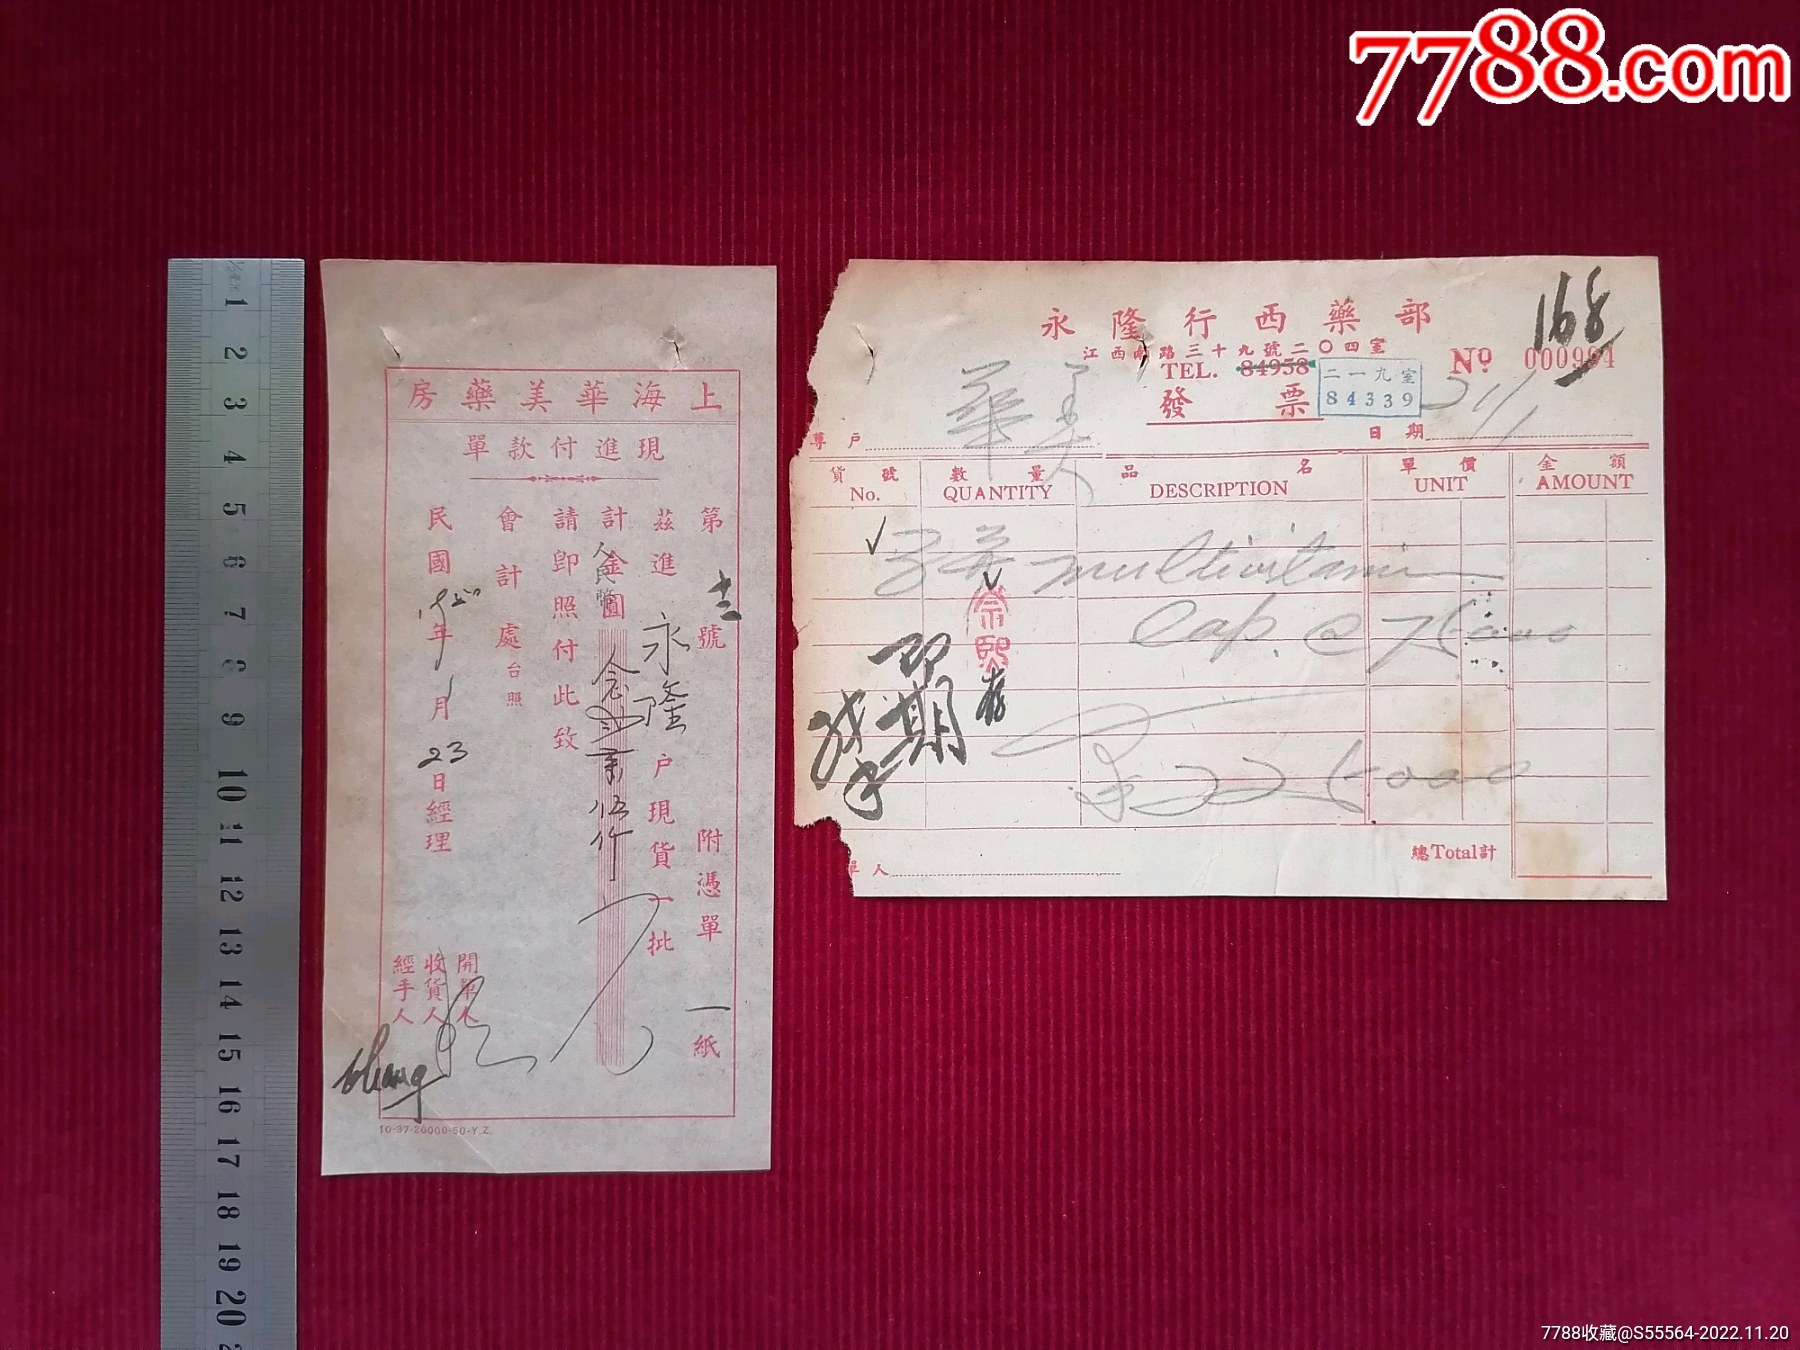 7788.com
上海華美藥房
現進付款單
第 十三 號 附憑單一紙
茲進 永隆 戶現貨一批
計金圓
人民幣
請卽照付此致
會計處台照
民國 年 1 月 23 日經理
開單人
收貨人
經手人
10-37-20000-50-Y.Z.
永隆行西藥部
江西南路三十九號二〇四室
TEL. 84938
發票
二一九室
84339
No 000994
168
尊戶 華美
日期
貨號 數量 品名 單價 金額
No. QUANTITY DESCRIPTION UNIT AMOUNT
multivitamin
Cap. @
即期
總Total計
單人
1 2 3 4 5 6 7 8 9 10 11 12 13 14 15 16 17 18 19 20
7788收藏@S55564-2022.11.20